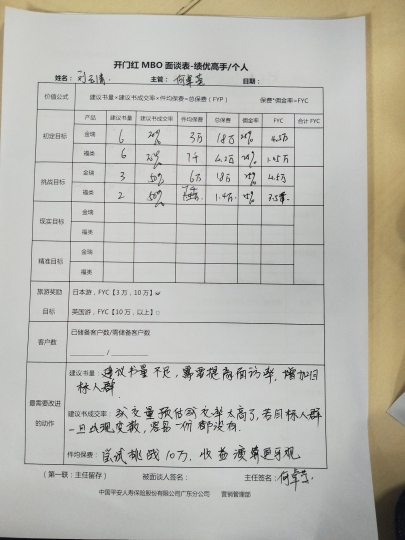 开门红 MBO 面谈表-绩优高手/个人
姓名： 主管：何卓莹 日期：
价值公式 建议书量×建议书成交率×件均保费=总保费（FYP） 保费*佣金率=FYC
产品 建议书量 建议书成交率 件均保费 总保费 佣金率 FYC 合计 FYC
初定目标 金瑞 6 3万 18万 25% 4.5万
福类 6 7千 4.2万 25% 1.05万
挑战目标 金瑞 3 50% 6万 18万 25% 4.5万
福类 2 50% 1.4万 25%
现实目标 金瑞
福类
精准目标 金瑞
福类
旅游奖励 日本游，FYC【3 万，10 万】
目标 英国游，FYC【10 万，以上】□
客户数 已储备客户数/需储备客户数
/
最需要改进的动作
建议书量：建议书量不足，需要提高面访率，增加目
标人群
建议书成交率：成交量预估成交率太高了，若目标人群
一旦出现变数，容易一份都没有.
件均保费：尝试挑战10万，收益演算更乐观
（第一联：主任留存） 被面谈人签名： 主任签名：何卓莹
中国平安人寿保险股份有限公司广东分公司 营销管理部